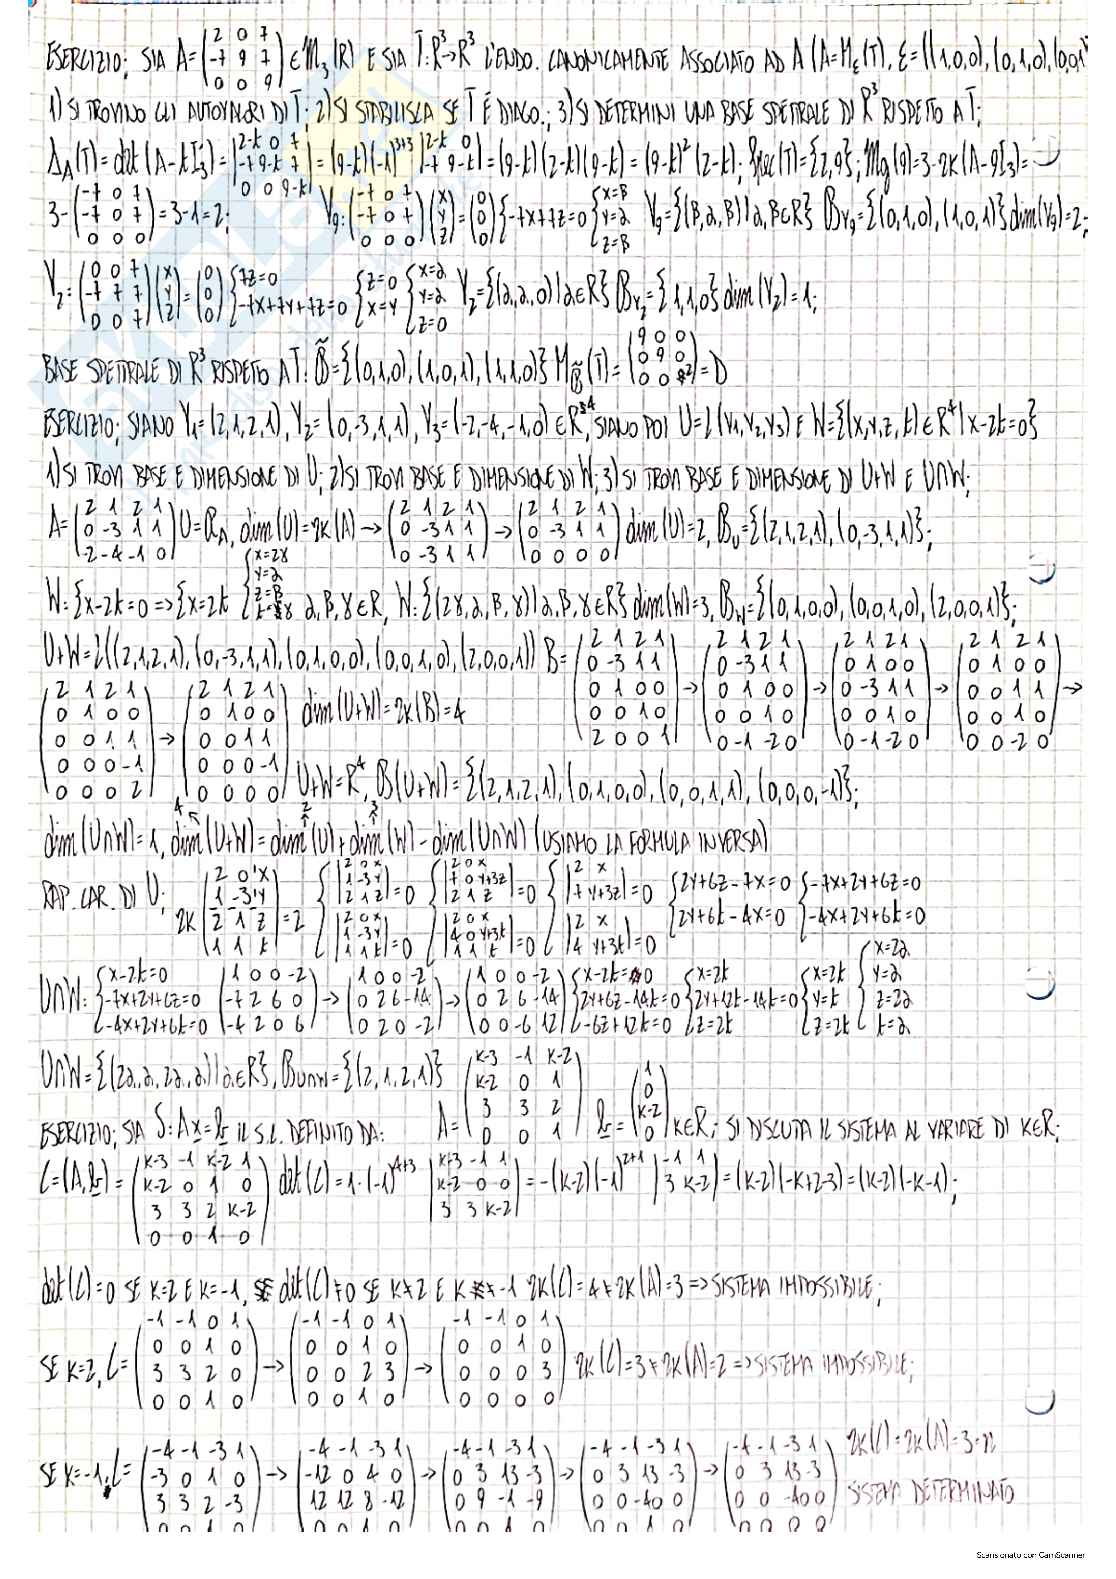 ESERCIZIO; SIA A=(2 0 7 / -7 9 7 / 0 0 9) ∈ M₃(R) E SIA T:R³→R³ L'ENDO. CANONICAMENTE ASSOCIATO AD A (A=M_ε(T), ε=((1,0,0),(0,1,0),(0,0,1)
1) SI TROVINO GLI AUTOVALORI DI T; 2) SI STABILISCA SE T È DIAGO.; 3) SI DETERMINI UNA BASE SPETTRALE DI R³ RISPETTO A T;
Δ_A(T)=det(A-tI₃)=|2-t 0 7 / -7 9-t 7 / 0 0 9-t|=(9-t)(-1)³⁺³|2-t 0 / -7 9-t|=(9-t)(2-t)(9-t)=(9-t)²(2-t); Spec(T)={2,9}; Mg(9)=3-rk(A-9I₃)=
3-(-7 0 7 / -7 0 7 / 0 0 0)=3-1=2; V₉:(-7 0 7 / -7 0 7 / 0 0 0)(x / y / z)=(0 / 0 / 0){-7x+7z=0 {x=β / y=α / z=β V₉={(β,α,β)|α,β∈R} B_V₉={(0,1,0),(1,0,1)} dim(V₉)=2;
V₂:(0 0 7 / -7 7 7 / 0 0 7)(x / y / z)=(0 / 0 / 0){7z=0 / -7x+7y+7z=0 {z=0 / x=y {x=α / y=α / z=0 V₂={(α,α,0)|α∈R} B_V₂={1,1,0} dim(V₂)=1;
BASE SPETTRALE DI R³ RISPETO A T: B̃={(0,1,0),(1,0,1),(1,1,0)} M_B̃(T)=(9 0 0 / 0 9 0 / 0 0 2)=D
ESERCIZIO; SIANO V₁=(2,1,2,1), V₂=(0,-3,1,1), V₃=(-2,-4,-1,0)∈R⁴, SIANO POI U=L(V₁,V₂,V₃) E W={(x,y,z,t)∈R⁴|x-2t=0}
1) SI TROVI BASE E DIMENSIONE DI U; 2) SI TROVI BASE E DIMENSIONE DI W; 3) SI TROVI BASE E DIMENSIONE DI U+W E U∩W;
A=(2 1 2 1 / 0 -3 1 1 / -2 -4 -1 0) U=R_A, dim(U)=rk(A)→(2 1 2 1 / 0 -3 1 1 / 0 -3 1 1)→(2 1 2 1 / 0 -3 1 1 / 0 0 0 0) dim(U)=2, B_U={(2,1,2,1),(0,-3,1,1)};
W:{x-2t=0=>{x=2t {x=2γ / y=α / z=β / t=γ α,β,γ∈R, W:{(2γ,α,β,γ)|α,β,γ∈R} dim(W)=3, B_W={(0,1,0,0),(0,0,1,0),(2,0,0,1)};
U+W=L((2,1,2,1),(0,-3,1,1),(0,1,0,0),(0,0,1,0),(2,0,0,1)) B=(2 1 2 1 / 0 -3 1 1 / 0 1 0 0 / 0 0 1 0 / 2 0 0 1)→(2 1 2 1 / 0 -3 1 1 / 0 1 0 0 / 0 0 1 0 / 0 -1 -2 0)→(2 1 2 1 / 0 1 0 0 / 0 -3 1 1 / 0 0 1 0 / 0 -1 -2 0)→(2 1 2 1 / 0 1 0 0 / 0 0 1 1 / 0 0 1 0 / 0 0 -2 0)→
(2 1 2 1 / 0 1 0 0 / 0 0 1 1 / 0 0 0 -1 / 0 0 0 2)→(2 1 2 1 / 0 1 0 0 / 0 0 1 1 / 0 0 0 -1 / 0 0 0 0) dim(U+W)=rk(B)=4
U+W=R⁴, B(U+W)={(2,1,2,1),(0,1,0,0),(0,0,1,1),(0,0,0,-1)};
4 2 3
dim(U∩W)=1, dim(U+W)=dim(U)+dim(W)-dim(U∩W) (USIAMO LA FORMULA INVERSA)
RAP. CAR. DI U; rk(2 0 x / 1 -3 y / 2 1 z / 1 1 t)=2 {|2 0 x / 1 -3 y / 2 1 z|=0 / |2 0 x / 1 -3 y / 1 1 t|=0 {|2 0 x / 7 0 y+3z / 2 1 z|=0 / |2 0 x / 4 0 y+3t / 1 1 t|=0 {|2 x / 7 y+3z|=0 / |2 x / 4 y+3t|=0 {2y+6z-7x=0 / 2y+6t-4x=0 {-7x+2y+6z=0 / -4x+2y+6t=0
U∩W:{x-2t=0 / -7x+2y+6z=0 / -4x+2y+6t=0 (1 0 0 -2 / -7 2 6 0 / -4 2 0 6)→(1 0 0 -2 / 0 2 6 -14 / 0 2 0 -2)→(1 0 0 -2 / 0 2 6 -14 / 0 0 -6 12){x-2t=0 / 2y+6z-14t=0 / -6z+12t=0 {x=2t / 2y+12t-14t=0 / z=2t {x=2t / y=t / z=2t {x=2α / y=α / z=2α / t=α
U∩W={(2α,α,2α,α)|α∈R}, B_U∩W={(2,1,2,1)}
ESERCIZIO; SIA S:Ax=b IL S.L. DEFINITO DA: A=(k-3 -1 k-2 / k-2 0 1 / 3 3 2 / 0 0 1) b=(1 / 0 / k-2 / 0) k∈R; SI DISCUTA IL SISTEMA AL VARIARE DI K∈R;
C=(A,b)=(k-3 -1 k-2 1 / k-2 0 1 0 / 3 3 2 k-2 / 0 0 1 0) det(C)=1·(-1)⁴⁺³|k+3 -1 1 / k-2 0 0 / 3 3 k-2|=-(k-2)(-1)²⁺¹|-1 1 / 3 k-2|=(k-2)(-k+2-3)=(k-2)(-k-1);
det(C)=0 SE K=2 E K=-1, det(C)≠0 SE K≠2 E K≠-1 rk(C)=4≠rk(A)=3=>SISTEMA IMPOSSIBILE;
SE K=2, C=(-1 -1 0 1 / 0 0 1 0 / 3 3 2 0 / 0 0 1 0)→(-1 -1 0 1 / 0 0 1 0 / 0 0 2 3 / 0 0 1 0)→(-1 -1 0 1 / 0 0 1 0 / 0 0 0 3 / 0 0 0 0) rk(C)=3≠rk(A)=2=>SISTEMA IMPOSSIBILE;
SE K=-1, C=(-4 -1 -3 1 / -3 0 1 0 / 3 3 2 -3 / 0 0 1 0)→(-4 -1 -3 1 / -12 0 4 0 / 12 12 8 -12)→(-4 -1 -3 1 / 0 3 13 -3 / 0 9 -1 -9 / 0 0 1 0)→(-4 -1 -3 1 / 0 3 13 -3 / 0 0 -40 0 / 0 0 1 0)→(-4 -1 -3 1 / 0 3 13 -3 / 0 0 -40 0 / 0 0 0 0) rk(C)=rk(A)=3=n
SISTEMA DETERMINATO
Scansionato con CamScanner